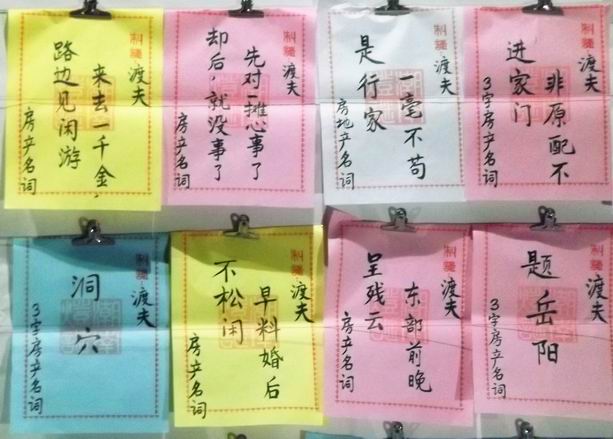 制谜 渡夫
来去一千金,
路边见闲游
房产名词
制谜 渡夫
先对一摊心事了
却后,就没事了
房产名词
制谜 渡夫
一毫不苟
是行家
房地产名词
制谜 渡夫
非原配不
进家门
3字房产名词
制谜 渡夫
洞穴
3字房产名词
制谜 渡夫
早料婚后
不松闲
房产名词
制谜 渡夫
东部前晚
呈残云
房产名词
制谜 渡夫
题岳阳
3字房产名词